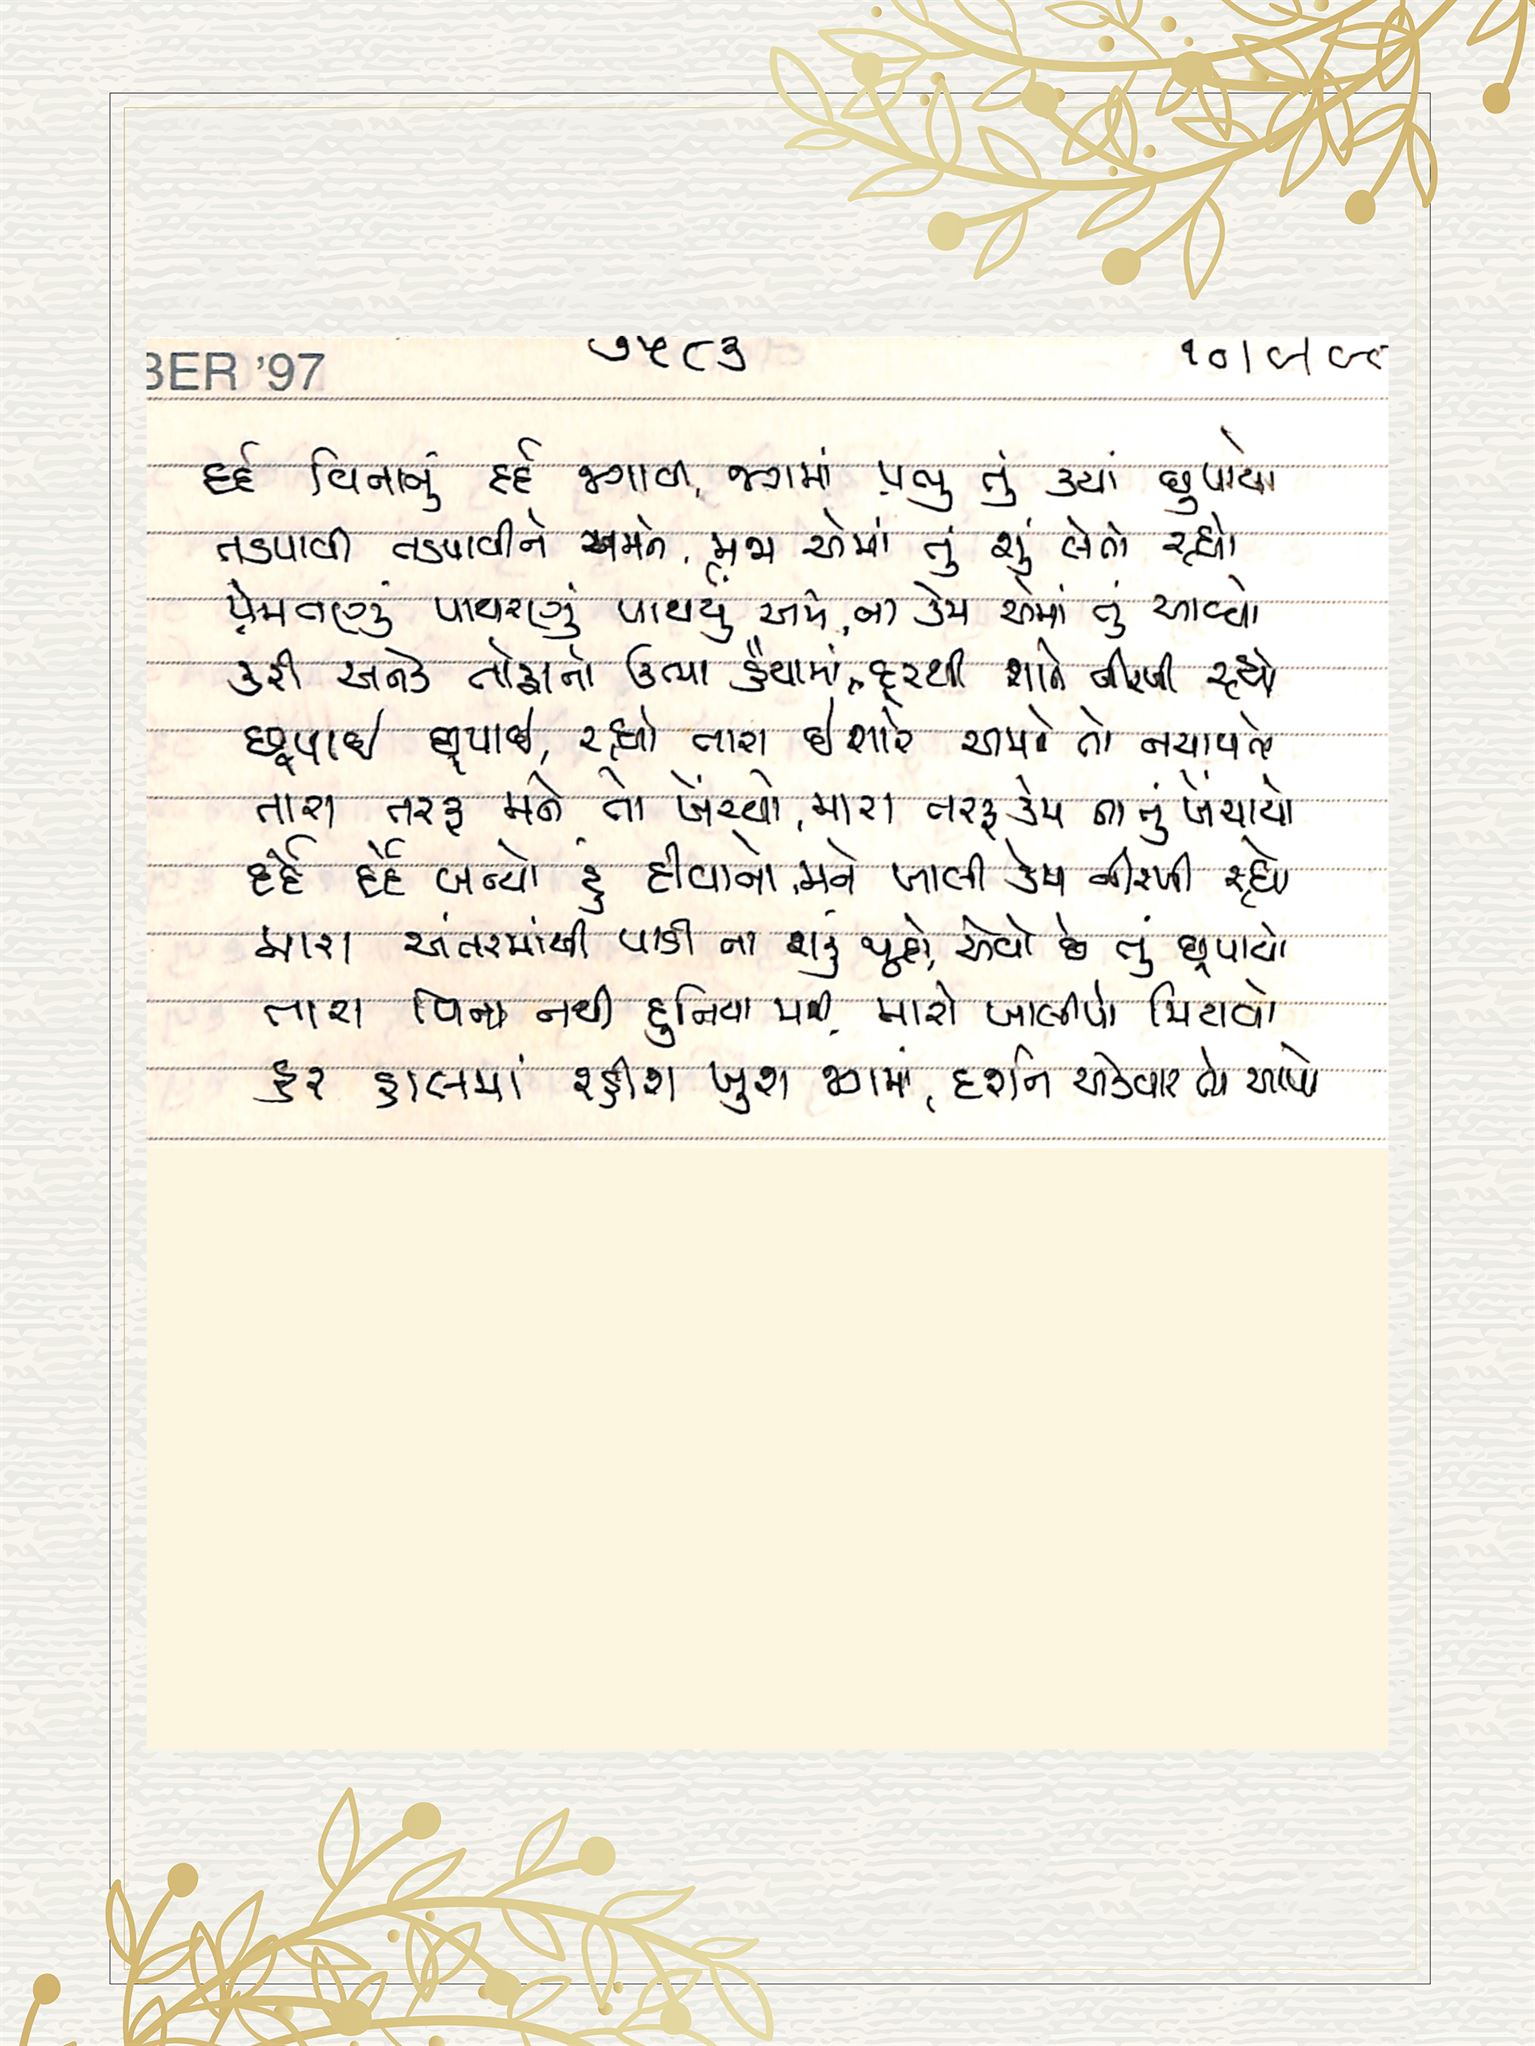 BER '97
૭૫૮૩
૧૦/૯/૯૮
દર્દ વિનાનું દર્દ જગાવી, જગમાં પ્રભુ તું ક્યાં છુપાયો
તડપાવી તડપાવીને અમને, મજા એમાં તું શું લેતો રહ્યો
પ્રેમતણું પાથરણું પાથર્યું અમે, ના કેમ એમાં તું આવ્યો
કરી અનેક તોફાનો ઉભા હૈયામાં, દૂરથી શાને નીરખી રહ્યો
છુપાઈ છુપાઈ, રહ્યો તારા ઈશારે અમને તો નચાવતો
તારા તરફ મને તો ખેંચ્યો, મારા તરફ કેમ ના તું ખેંચાયો
દર્દે દર્દે બન્યો હું દીવાનો, મને ખાલી કેમ નીરખી રહ્યો
મારા અંતરમાંથી પાડી ના શકું જુદો, એવો છે તું છુપાયો
તારા વિના નથી દુનિયા મારી, મારો ખાલીપો મિટાવો
હર હાલમાં રહીશ ખુશ જગમાં, દર્શન એકવાર તો આપો